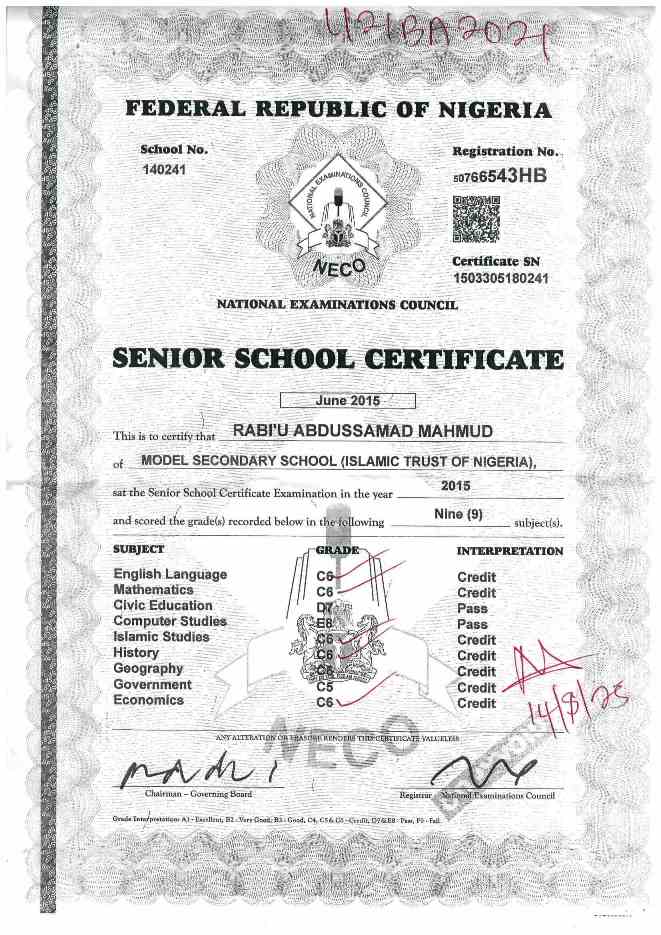 U21BA2021
FEDERAL REPUBLIC OF NIGERIA
School No.
140241
Registration No.
50766543HB
NATIONAL EXAMINATIONS COUNCIL
NECO
Certificate SN
1503305180241
NATIONAL EXAMINATIONS COUNCIL
SENIOR SCHOOL CERTIFICATE
June 2015
This is to certify that RABI'U ABDUSSAMAD MAHMUD
of MODEL SECONDARY SCHOOL (ISLAMIC TRUST OF NIGERIA),
sat the Senior School Certificate Examination in the year 2015
and scored the grade(s) recorded below in the following Nine (9) subject(s).
SUBJECT GRADE INTERPRETATION
English Language C6 Credit
Mathematics C6 Credit
Civic Education D7 Pass
Computer Studies E8 Pass
Islamic Studies C6 Credit
History C6 Credit
Geography Credit
Government C5 Credit
Economics C6 Credit
14/8/25
NECO
ANY ALTERATION OR ERASURE RENDERS THIS CERTIFICATE VALUELESS
Chairman – Governing Board
Registrar National Examinations Council
Grade Interpretation: A1 - Excellent, B2 - Very Good, B3 - Good, C4, C5 & C6 - Credit, D7 & E8 - Pass, F9 - Fail